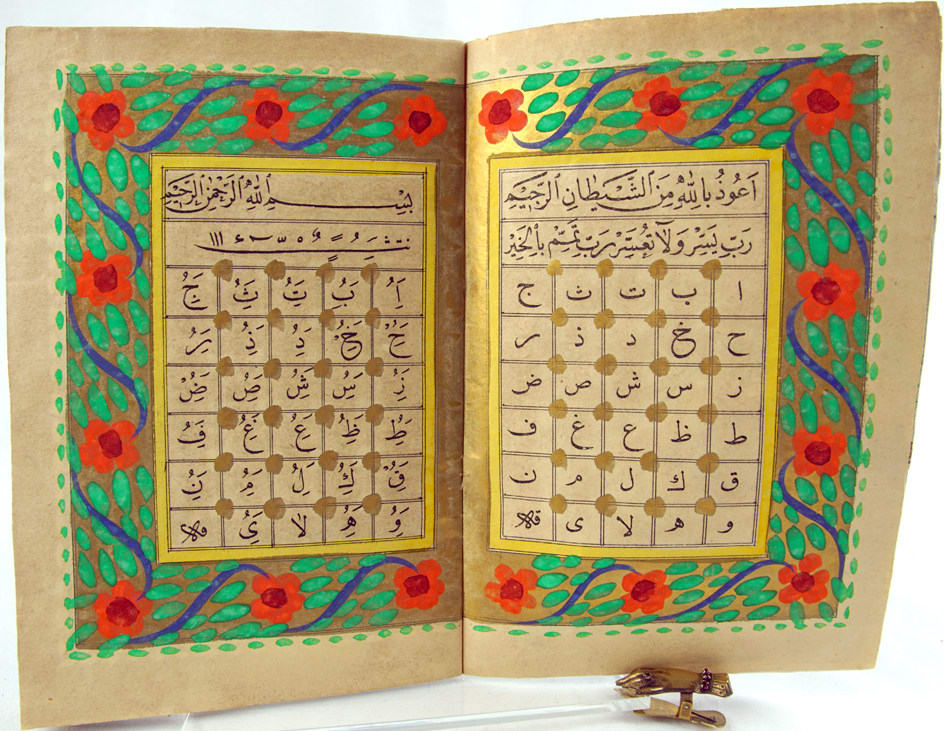 اَعُوذُ بِاللّٰهِ مِنَ الشَّيْطَانِ الرَّجِيمِ
رَبِّ يَسِّرْ وَلَا تُعَسِّرْ رَبِّ تَمِّمْ بِالْخَيْرِ
ا ب ت ث ج
ح خ د ذ ر
ز س ش ص ض
ط ظ ع غ ف
ق ك ل م ن
و ه لا ى
بِسْمِ اللّٰهِ الرَّحْمٰنِ الرَّحِيمِ
اَِ بَُِ تَُِ ثَُِ جَُِ
حَُِ خَُِ دَُِ ذَُِ رَُِ
زَُِ سَُِ شَُِ صَُِ ضَُِ
طَُِ ظَُِ عَُِ غَُِ فَُِ
قَُِ كَُِ لَُِ مَُِ نَُِ
وَُِ هَُِ لا يَُِ